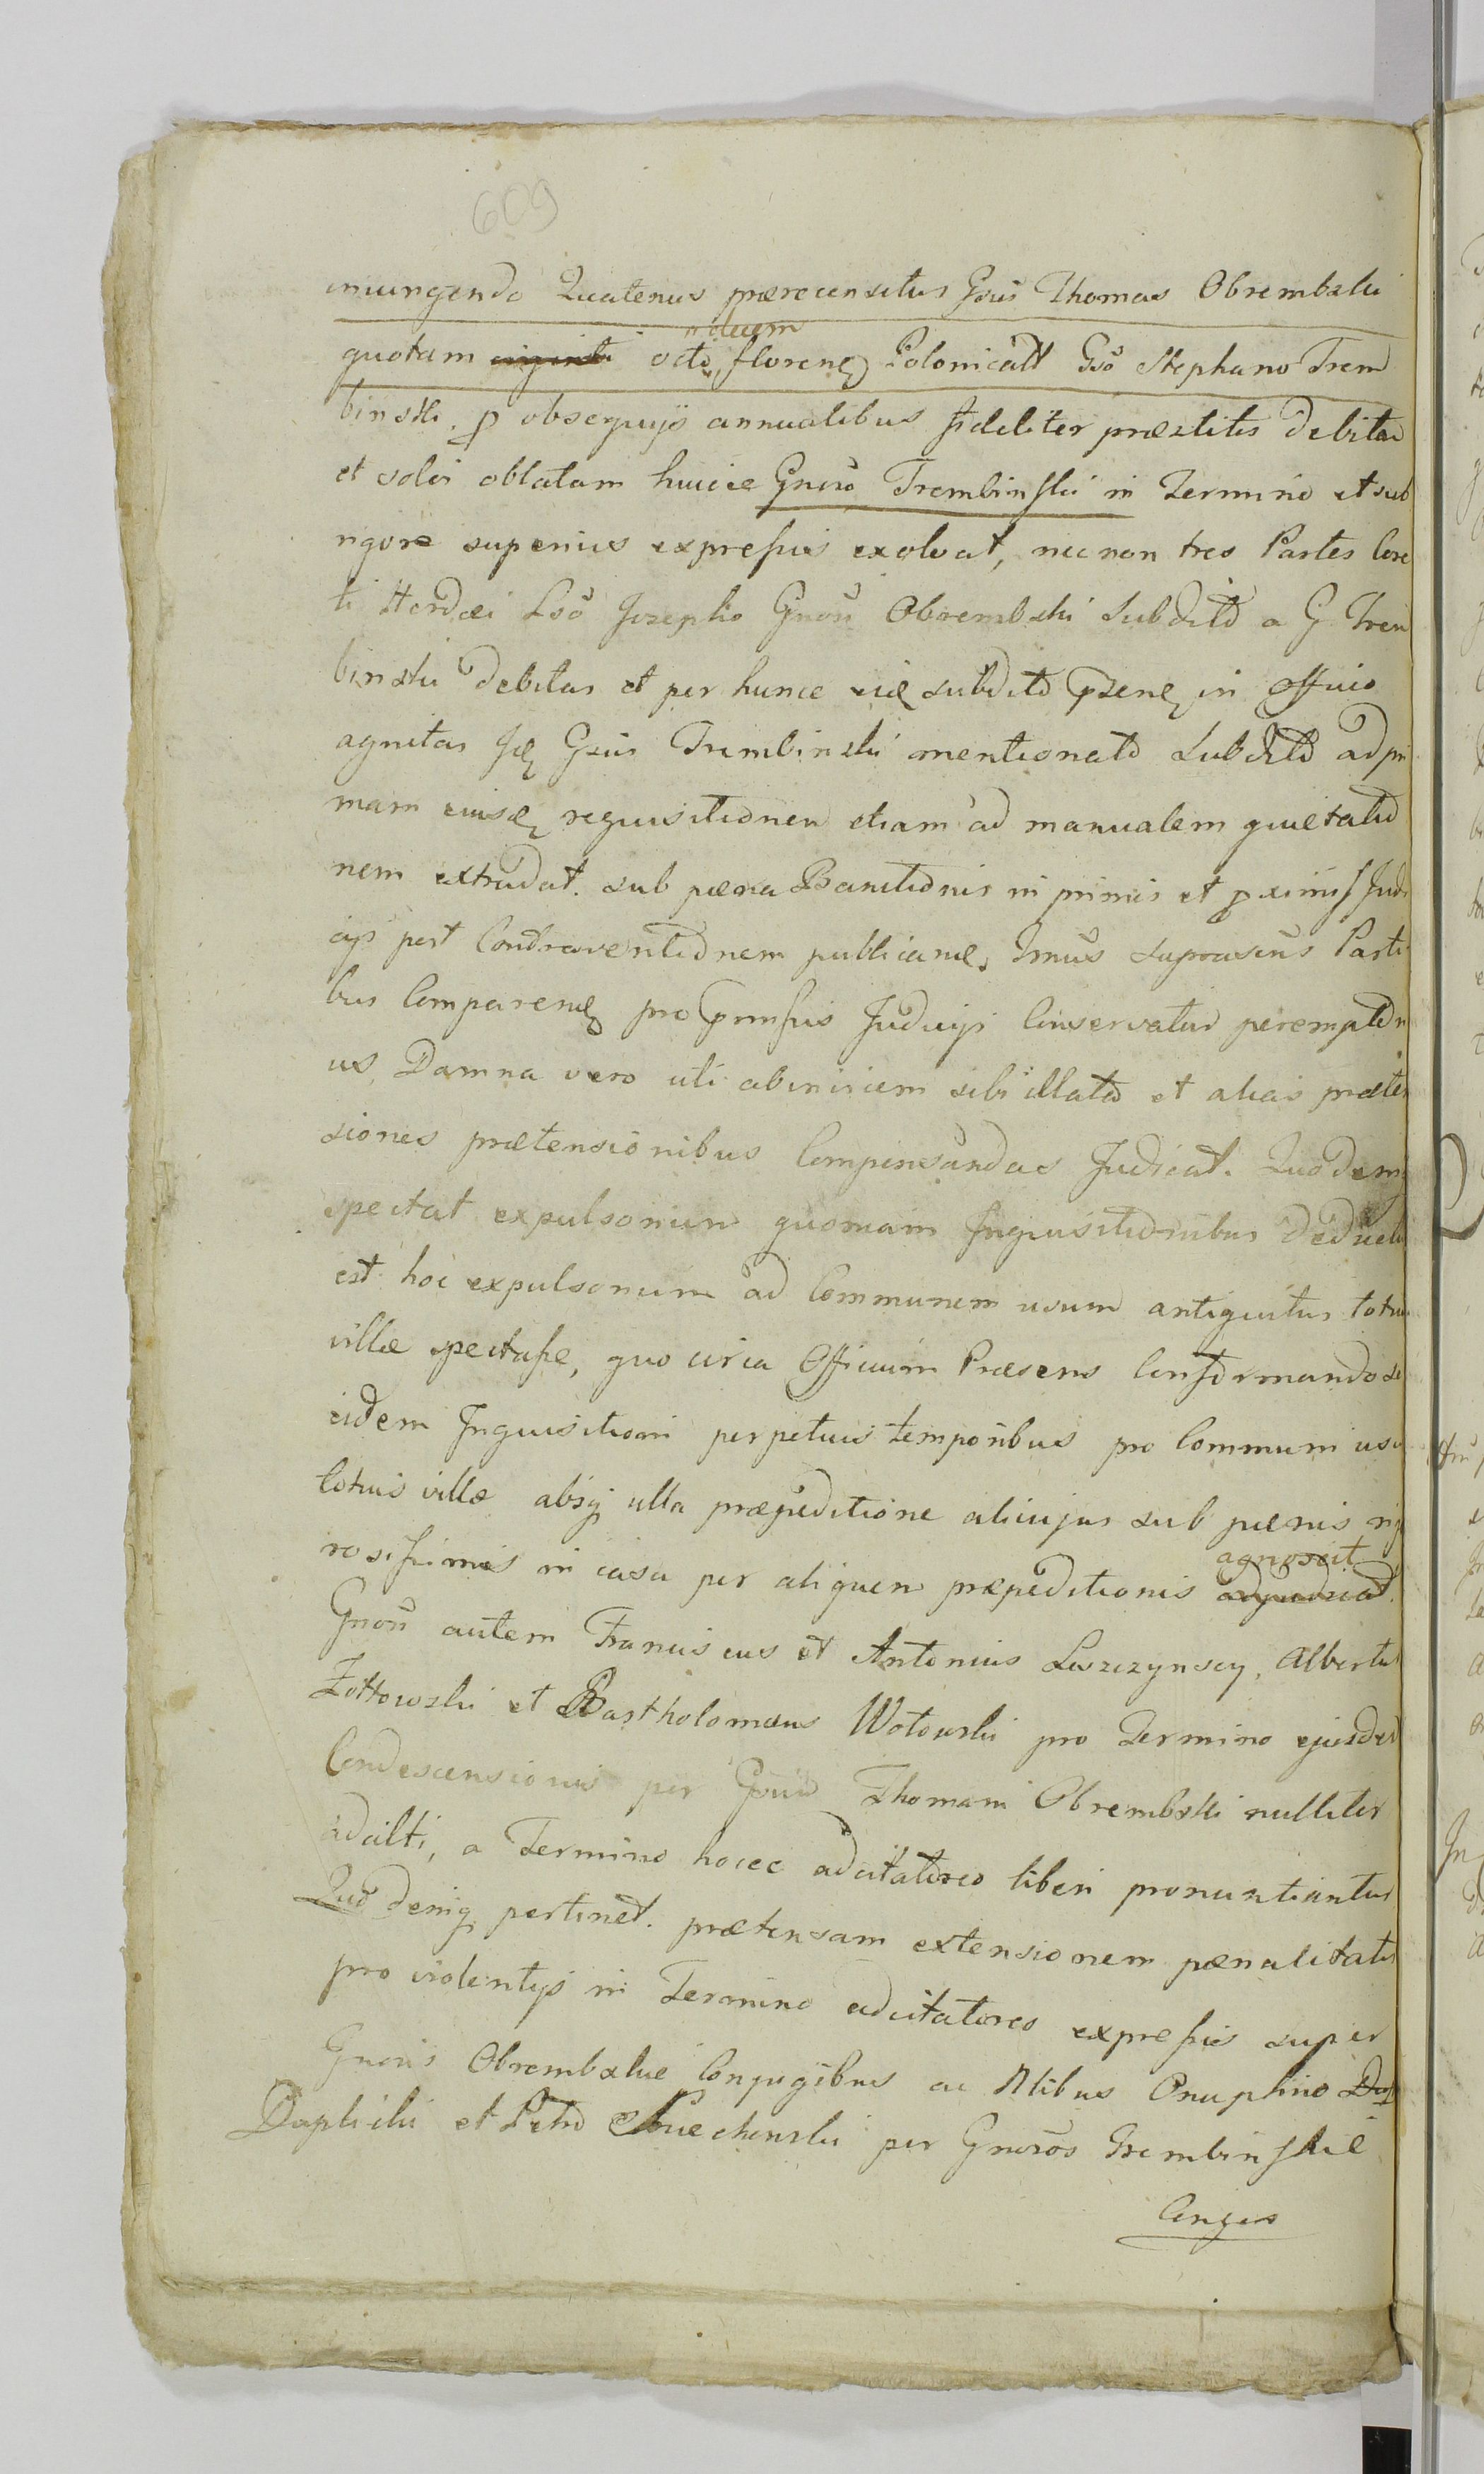 609
iniungendo Quatenus præcensitus Gsus Thomas Obrembski
quotam viginti octo, florenq Polonicall Gso Stephano Trem
binski. p obsequijs annualibus fideliter præstitis debitam
et solvi oblatam huicce Gnoso Trembinski in Termino et sub
rigore superius expressis exolvat, nec non tres Partes Core
ti Hordei Lso Josepho Gnosi Obrembski Subdito a G. Trem
binski debitas et per hunce eiq subdito psenq in officio
agnitas Gsus Trembinski mentionato Subdito ad pri
mam eiusq requisitionem etiam ad manualem quietatio
nem extradat. sub pœna Banitionis in primis et pximis Judi
cijs post Contraventionem publicanq. Partibus
bus Comparenq pro Judicijs Conservatur
us Damna vero uti abinvicem sibi illata et alias præten
siones prætensionibus Compensandas Judicat. Quo demq
spectat expulsorium quoniam Inquisitionibus deductu
est hoc expulsorium ad Communem usum antiquitus totius
villæ spectasse, quo circa Officium Præsens Conformando se
eidem Inquisitioni perpetuis temporibus pro Communi usu
totius villæ absq ulla præpeditione alicujus sub pœnis rig
agnoscit
rosissimis in casu per aliquem præpeditionis adjudicat.
Gnosi autem Franciscus et Antonius Leszczynscy, Albertus
Zottowski et Bartholomæus Wotowski pro Termino ejusdem
Condescensionis per Gsum Thomam Obrembski nulliter
adciti, a Termino hocce adcitatoreo liberi pronuntiantur
Quo deniq pertinet. prætensam extensionem pœnalitatis
pro violentijs in Termino adcitatoreo expressis super
Gnosis Obrembskie Conjugibus ac Nlibus Onuphrio Da
Daplicki et Petro per Gnosos Trembinskie
Conges